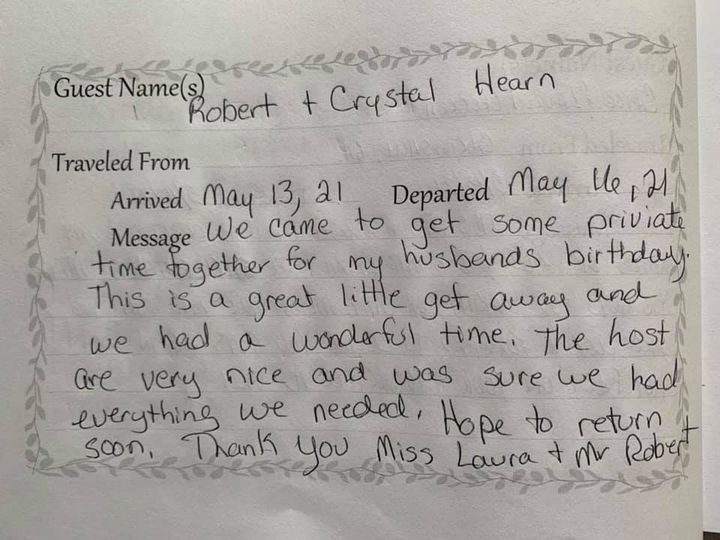 Guest Name(s) Robert + Crystal Hearn
Traveled From
Arrived May 13, 21 Departed May 16, 21
Message We came to get some priviate
time together for my husbands birthday.
This is a great little get away and
we had a wonderful time. The host
are very nice and was sure we had
everything we needed. Hope to return
soon. Thank You Miss Laura + Mr Robert